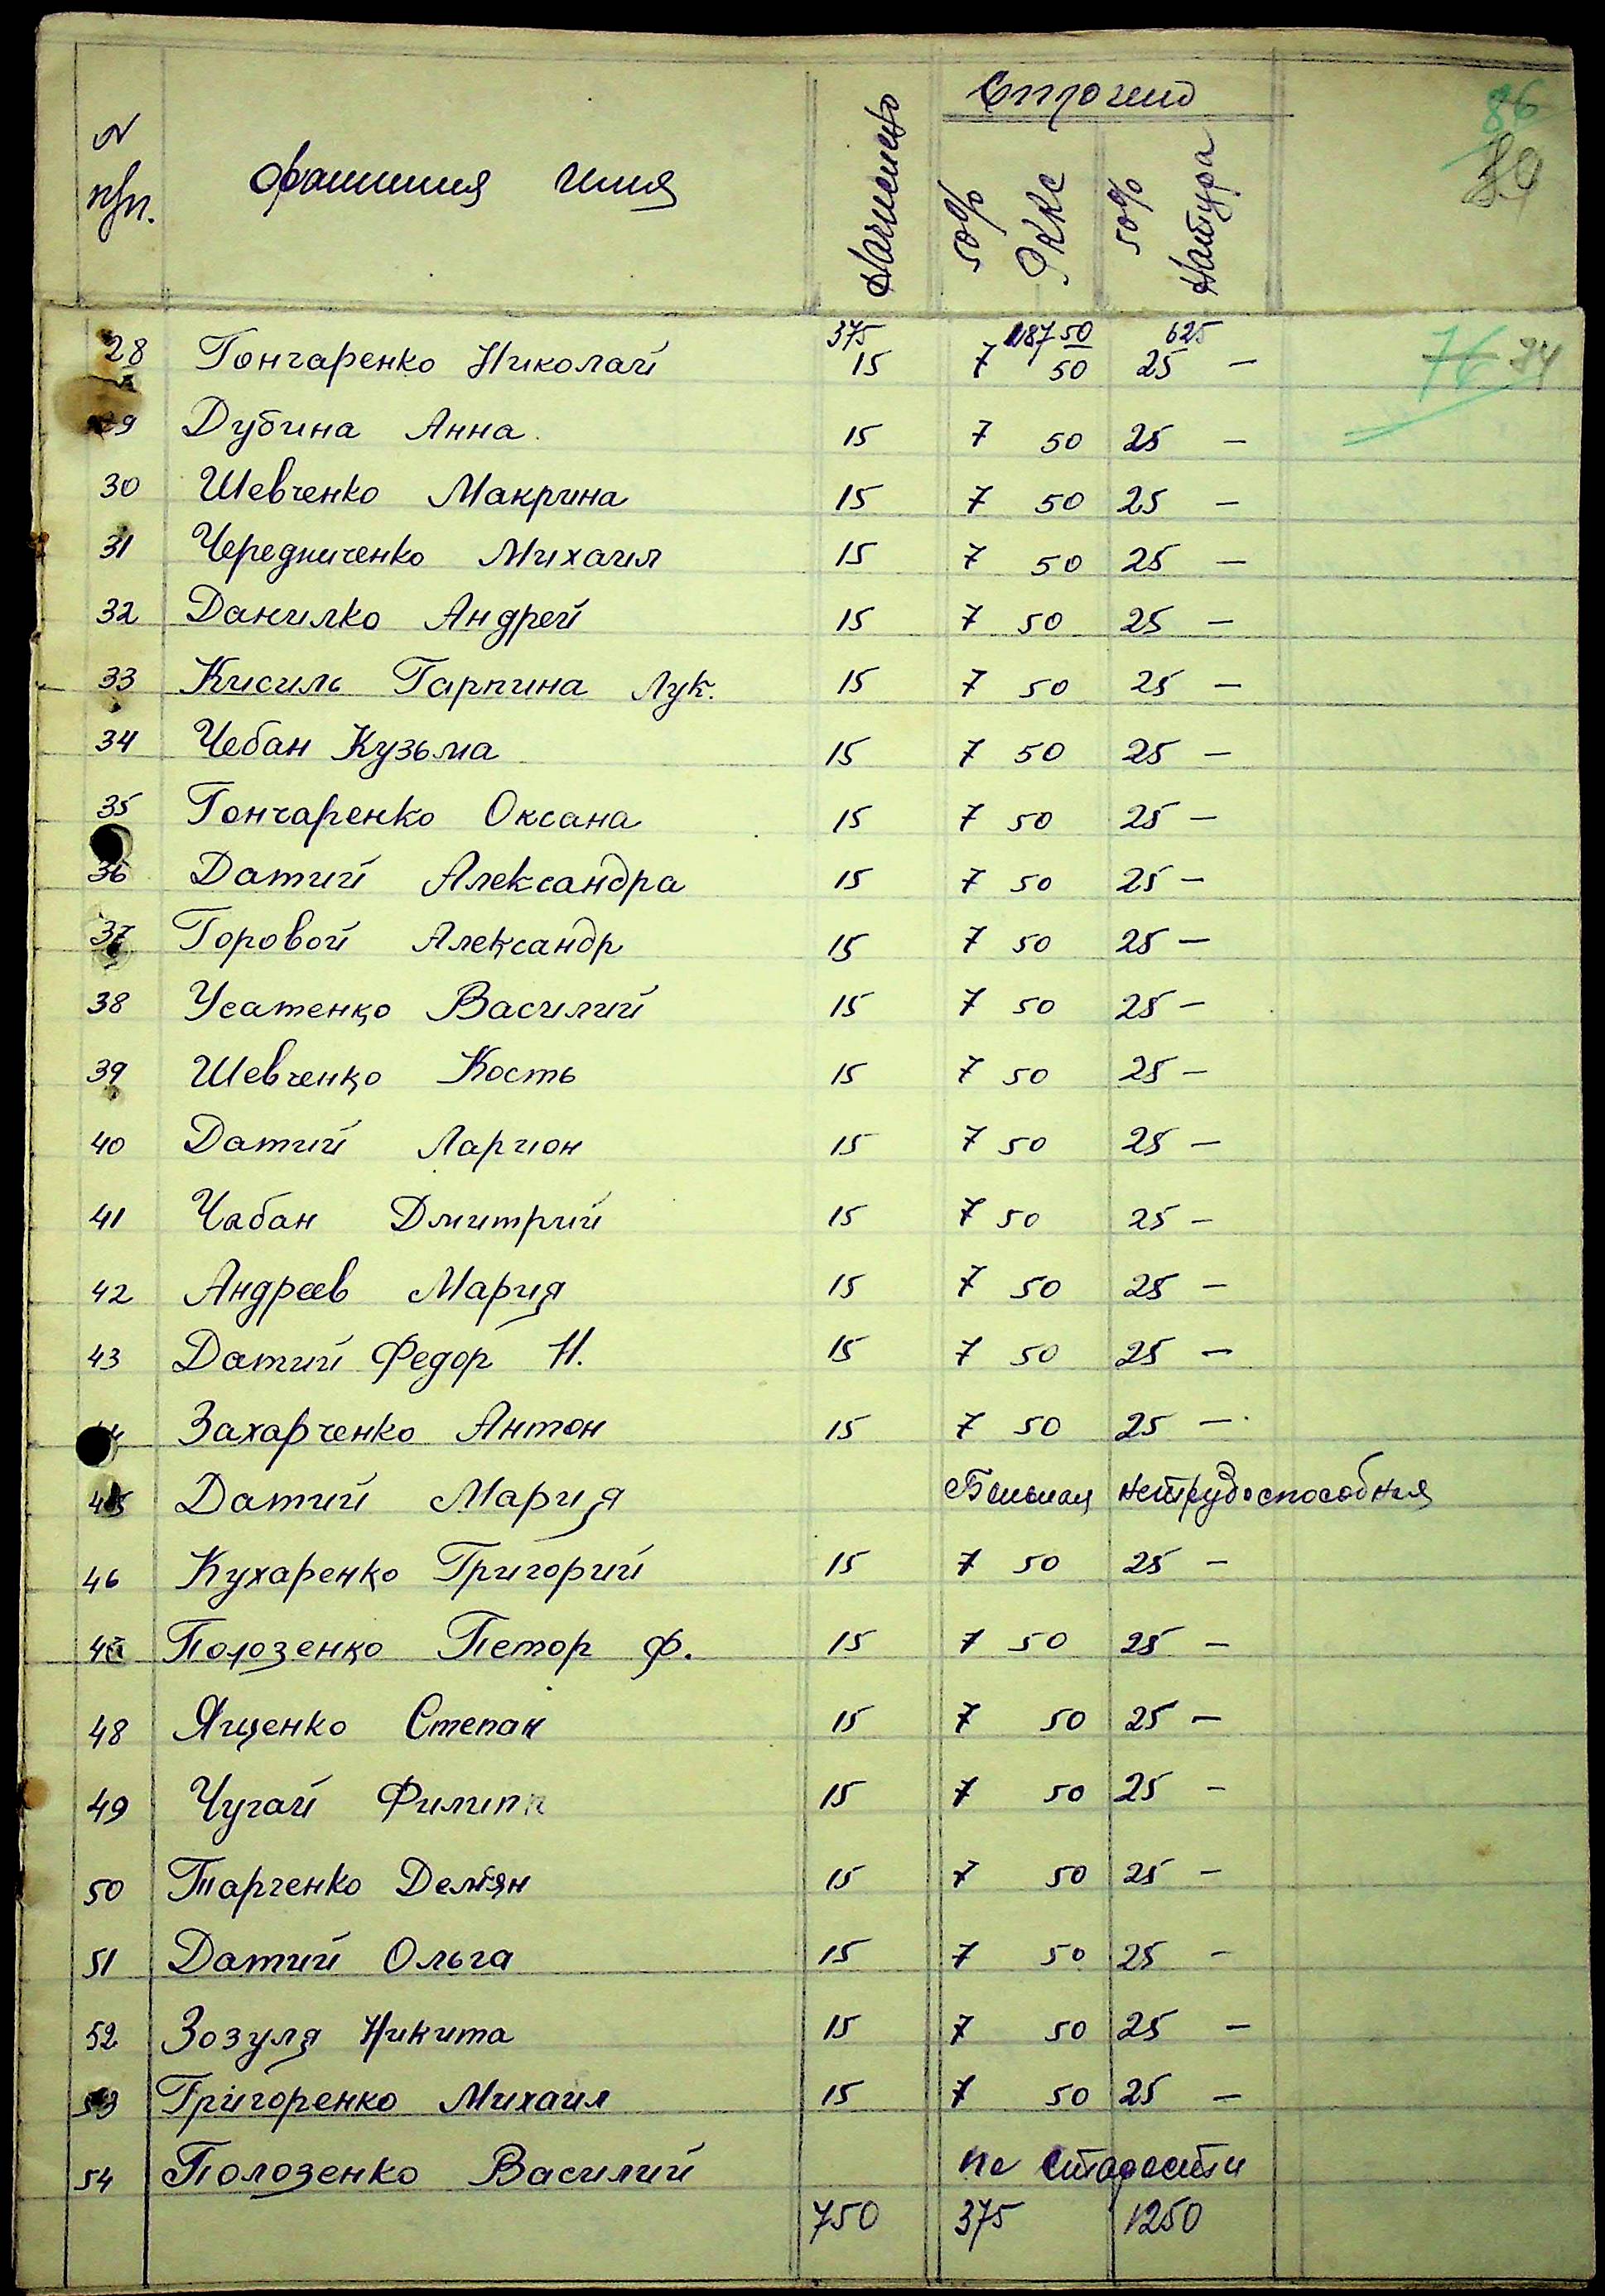 N п/п. фамилия имя Начислено Строчено
50% РККА 50% Натура
86
89
375 187 50 625
28 Гончаренко Николай 15 7 50 25 — 76 34
29 Дубина Анна 15 7 50 25 —
30 Шевченко Макрина 15 7 50 25 —
31 Чередниченко Михаил 15 7 50 25 —
32 Данилко Андрей 15 7 50 25 —
33 Кисиль Гарпина Лук. 15 7 50 25 —
34 Чебан Кузьма 15 7 50 25 —
35 Гончаренко Оксана 15 7 50 25 —
36 Датий Александра 15 7 50 25 —
37 Горовой Александр 15 7 50 25 —
38 Усатенко Василий 15 7 50 25 —
39 Шевченко Кость 15 7 50 25 —
40 Датий Ларион 15 7 50 25 —
41 Чабан Дмитрий 15 7 50 25 —
42 Андреев Мария 15 7 50 25 —
43 Датий Федор Н. 15 7 50 25 —
44 Захарченко Антон 15 7 50 25 —
45 Датий Мария Больная нетрудоспособная
46 Кухаренко Григорий 15 7 50 25 —
47 Полозенко Петор Ф. 15 7 50 25 —
48 Ященко Степан 15 7 50 25 —
49 Чугай Филипп 15 7 50 25 —
50 Парченко Демян 15 7 50 25 —
51 Датий Ольга 15 7 50 25 —
52 Зозуля Никита 15 7 50 25 —
53 Григоренко Михаил 15 7 50 25 —
54 Полозенко Василий по старости
750 375 1250